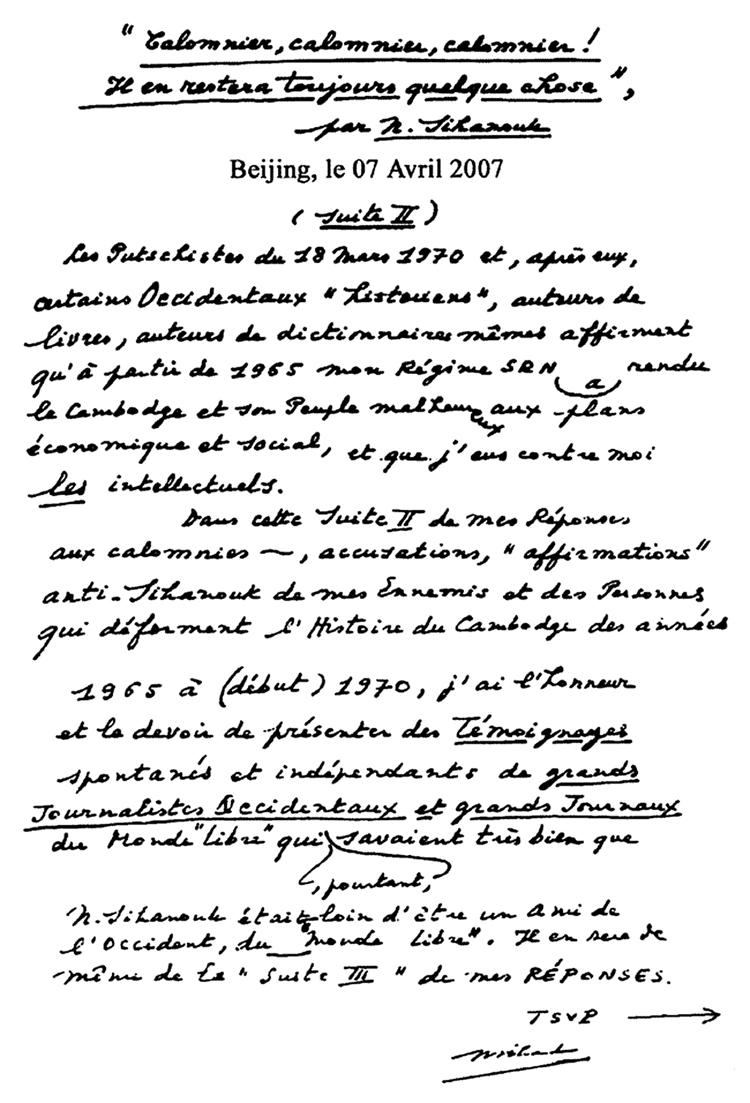 "Calomnier, calomnier, calomnier !
Il en restera toujours quelque chose",
par N. Sihanouk
Beijing, le 07 Avril 2007
(Suite II)
Les Putschistes du 18 Mars 1970 et, après eux,
certains Occidentaux "historiens", auteurs de
livres, auteurs de dictionnaires mêmes affirment
qu'à partir de 1965 mon Régime SRN a rendu
le Cambodge et son Peuple malheureux aux plans
économique et social, et que j'eus contre moi
les intellectuels.
Dans cette Suite II de mes Réponses
aux calomnies —, accusations, "affirmations"
anti-Sihanouk de mes Ennemis et des Personnes
qui déforment l'Histoire du Cambodge des années
1965 à (début) 1970, j'ai l'honneur
et le devoir de présenter des Témoignages
spontanés et indépendants de grands
Journalistes Occidentaux et grands Journaux
du Monde "libre" qui, pourtant, savaient très bien que
N. Sihanouk était loin d'être un Ami de
l'Occident, du "Monde libre". Il en sera de
même de la "Suite III" de mes RÉPONSES.
TSVP →